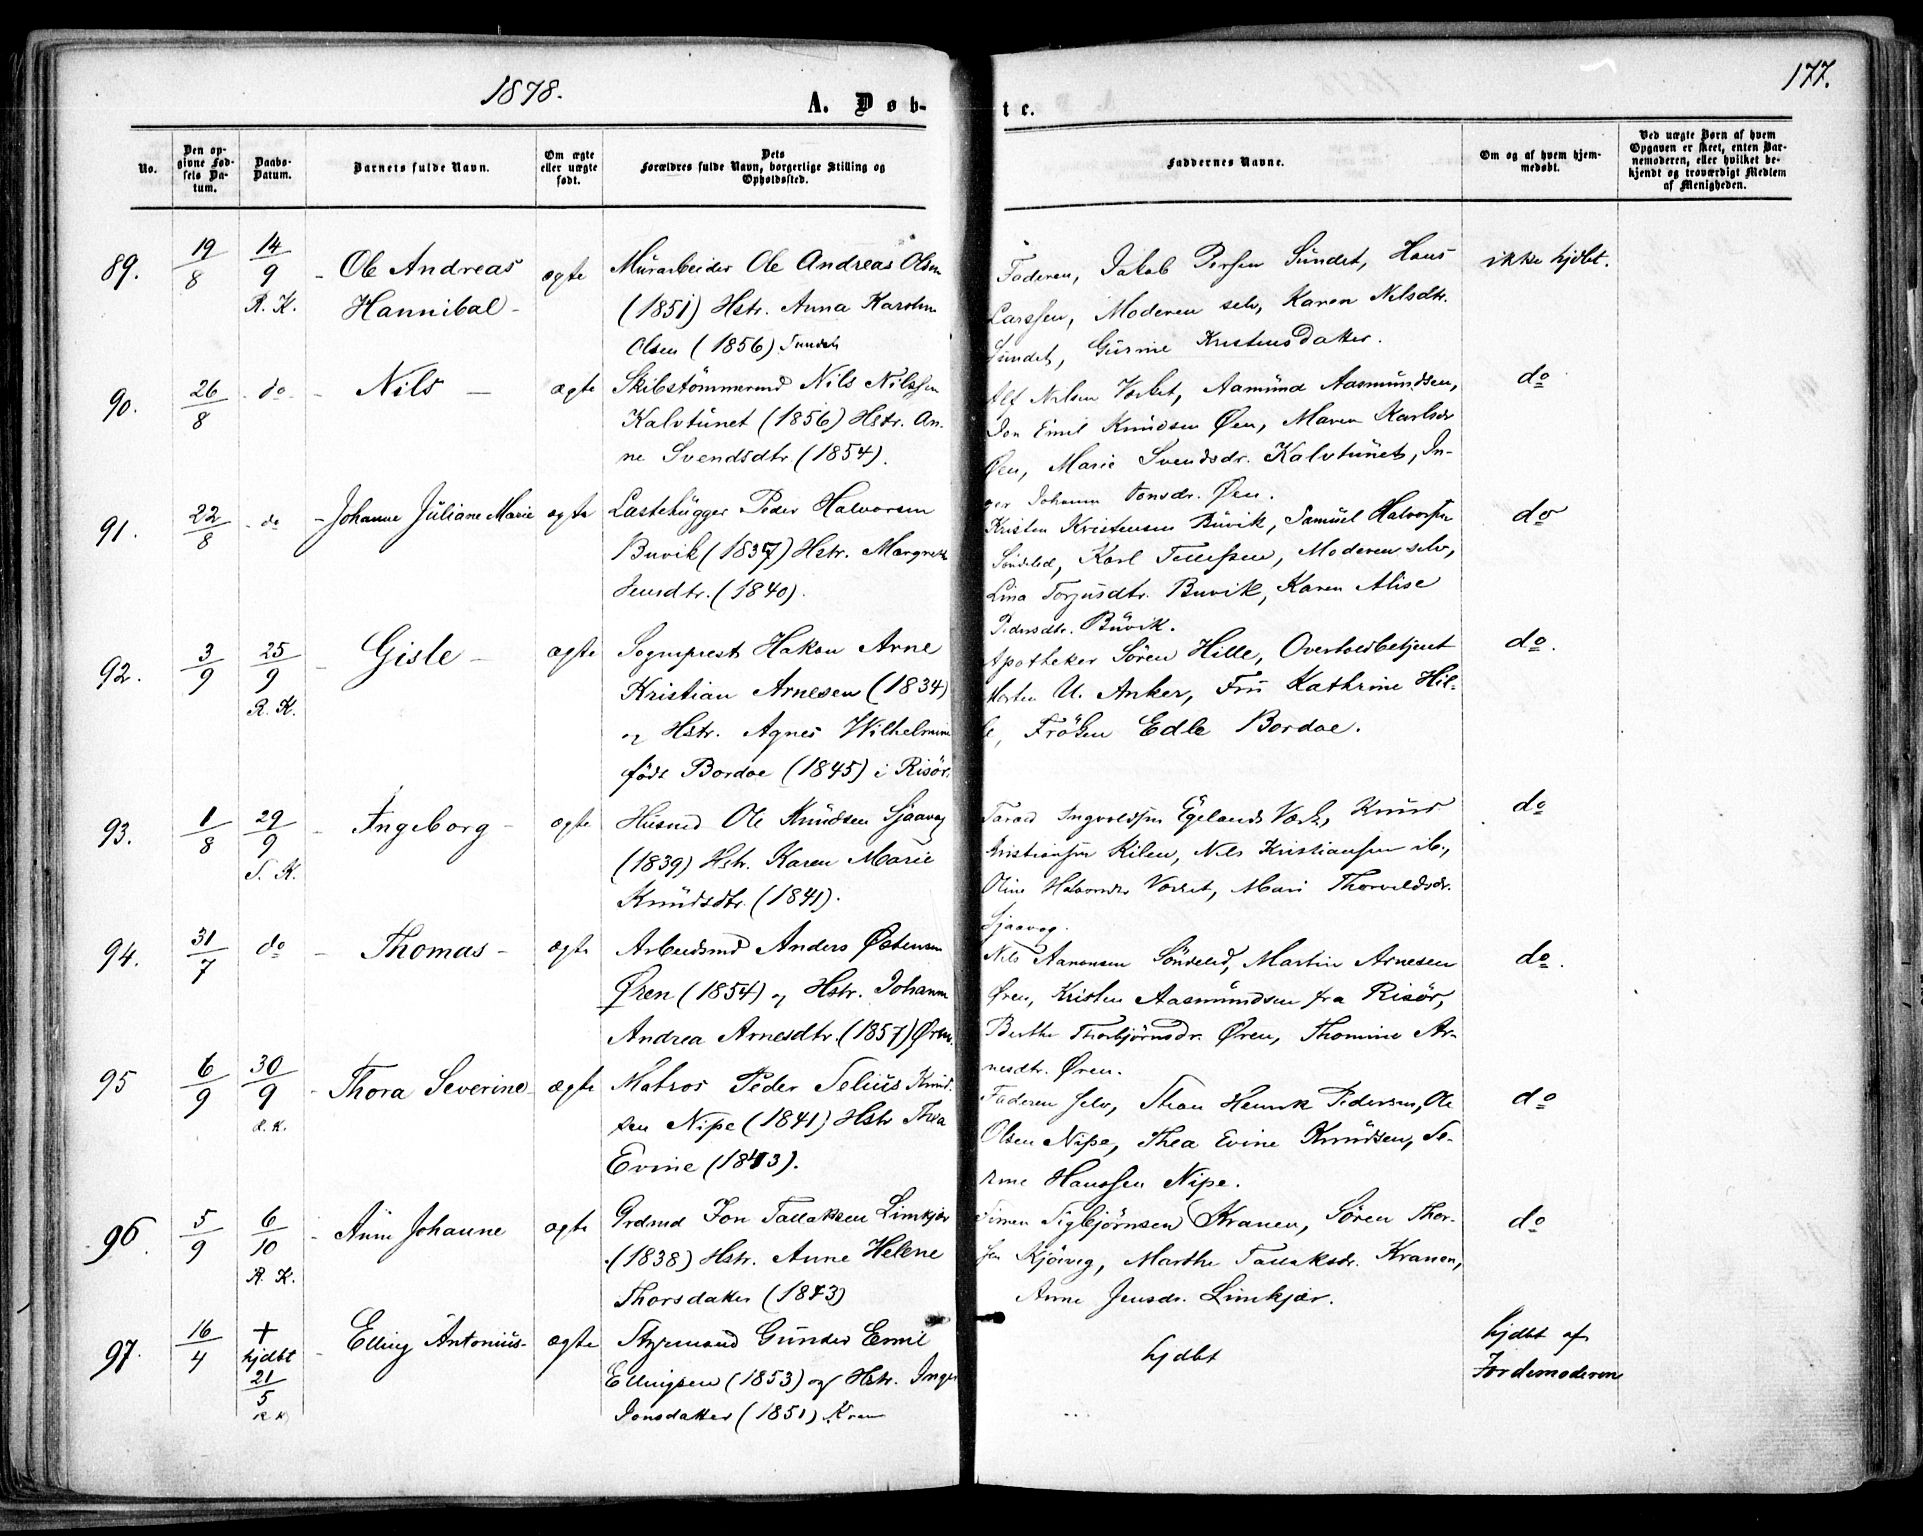 1878.
177.
A. Døb-
te.
No.
Den op-
givne Fød-
sels Da-
tum.
Daabs-
Datum.
Barnets fulde Navn.
Om ægte
eller uægte
født.
Dets
Forældres fulde Navn, borgerlige Stilling og
Opholdssted.
Faddernes Navne.
Om og af hvem hjem-
medøbt.
Ved uægte Børn af hvem
Opgaven er skeet, enten Bar-
nemoderen, eller hvilket be-
kjendt og troværdigt Medlem
af Menigheden.
89.
19/8
14/9
R. K.
Ole Andreas
Hannibal
ægte
Murarbeider Ole Andreas Olsen
(1851) Hstr. Anna Karoline
Olsen (1856) Sundet
Faderen, Jakob Persen Sundet, Hans
Larssen, Moderen selv, Karen Nilsdtr.
Sundet, Gurine Kristensdatter.
ikke hjdbt.
90.
26/8
do
Nils
ægte
Skibstömmermd Nils Nilssen
Kalvtunet (1856) Hstr. An-
ne Svendsdtr (1854).
Alf Nilsen Værket, Aamund Aasmundsen,
Jon Emil Knudsen Øen, Maren Karlsdr
Øen, Marie Svendsdr. Kalvtunet, In-
ger Johanne Tonsdr. Øen.
do
91.
22/8
do
Johanne Juliane Marie
ægte
Lastehugger Peder Halvorsen
Buvik (1837) Hstr. Margrete
Jensdtr. (1840).
Kristen Kristensen Buvik, Samuel Halvorsen
Söndeled, Karl Tellefsen, Moderen selv,
Lina Torjusdtr. Buvik, Karen Alise
Pedersdtr. Buvik.
do
92.
3/9
25/9
R. K.
Gisle
ægte
Sogneprest Hakon Arne
Kristian Arnesen (1834)
og Hstr. Agnes Wilhelmine
födt Bordoe (1845) i Risör.
Apotheker Sören Hille, Overtoldbetjent
Morten U. Anker, Fru Kathrine Hil-
le, Fröken Edle Bordoe.
do.
93.
1/8
29/9
S. K.
Ingeborg
ægte
Husmd Ole Knudsen Sjaavaag
(1839) Hstr. Karen Marie
Knudsdtr. (1841).
Tarald Ingvoldsen Egelands Værk, Knud
Kristiansen Kilen, Nils Kristiansen ib.,
Oline Halvorsdr Værket, Mari Thorvaldsdr.
Sjaavag.
do
94.
31/7
do
Thomas
ægte
Arbeidsmd Anders Østensen
Øren (1854) og Hstr. Johanne
Andrea Arnesdtr. (1857) Øren.
Nils Aanonsen Söndeled, Martin Arnesen
Øren, Kristen Aasmundsen fra Risör,
Berthe Thorbjörnsdr. Øren, Thomine Ar-
nesdtr. Øren.
do.
95
6/9
30/9
R. K.
Thora Severine
ægte
Matros Peder Selius Knud-
sen Nipe (1841) Hstr Thea
Evine (1843).
Faderen selv, Henrik Pedersen, Ole
Olsen Nipe, Thea Evine Knudsen, Se-
rine Hanssen Nipe.
do
96.
5/9
6/10
R. K.
Anne Johanne
ægte
Grdmd Jon Tallaksen Limkjær
(1838) Hstr. Anne Helene
Thorsdatter (1843)
Simen Sigbjörnsen Kranen, Sören Thor-
sen Kjöivig, Marthe Tallaksdr. Kranen,
Anne Jensdr. Limkjær.
do
97.
16/4
+
hjdbt
21/5
R. K.
Elling Antonius
ægte
Styrmand Gunder Emil
Ellingsen (1853) og Hstr. Inger
Jonsdatter (1851)
hjdbt
hjdbt af
Jordemoderen